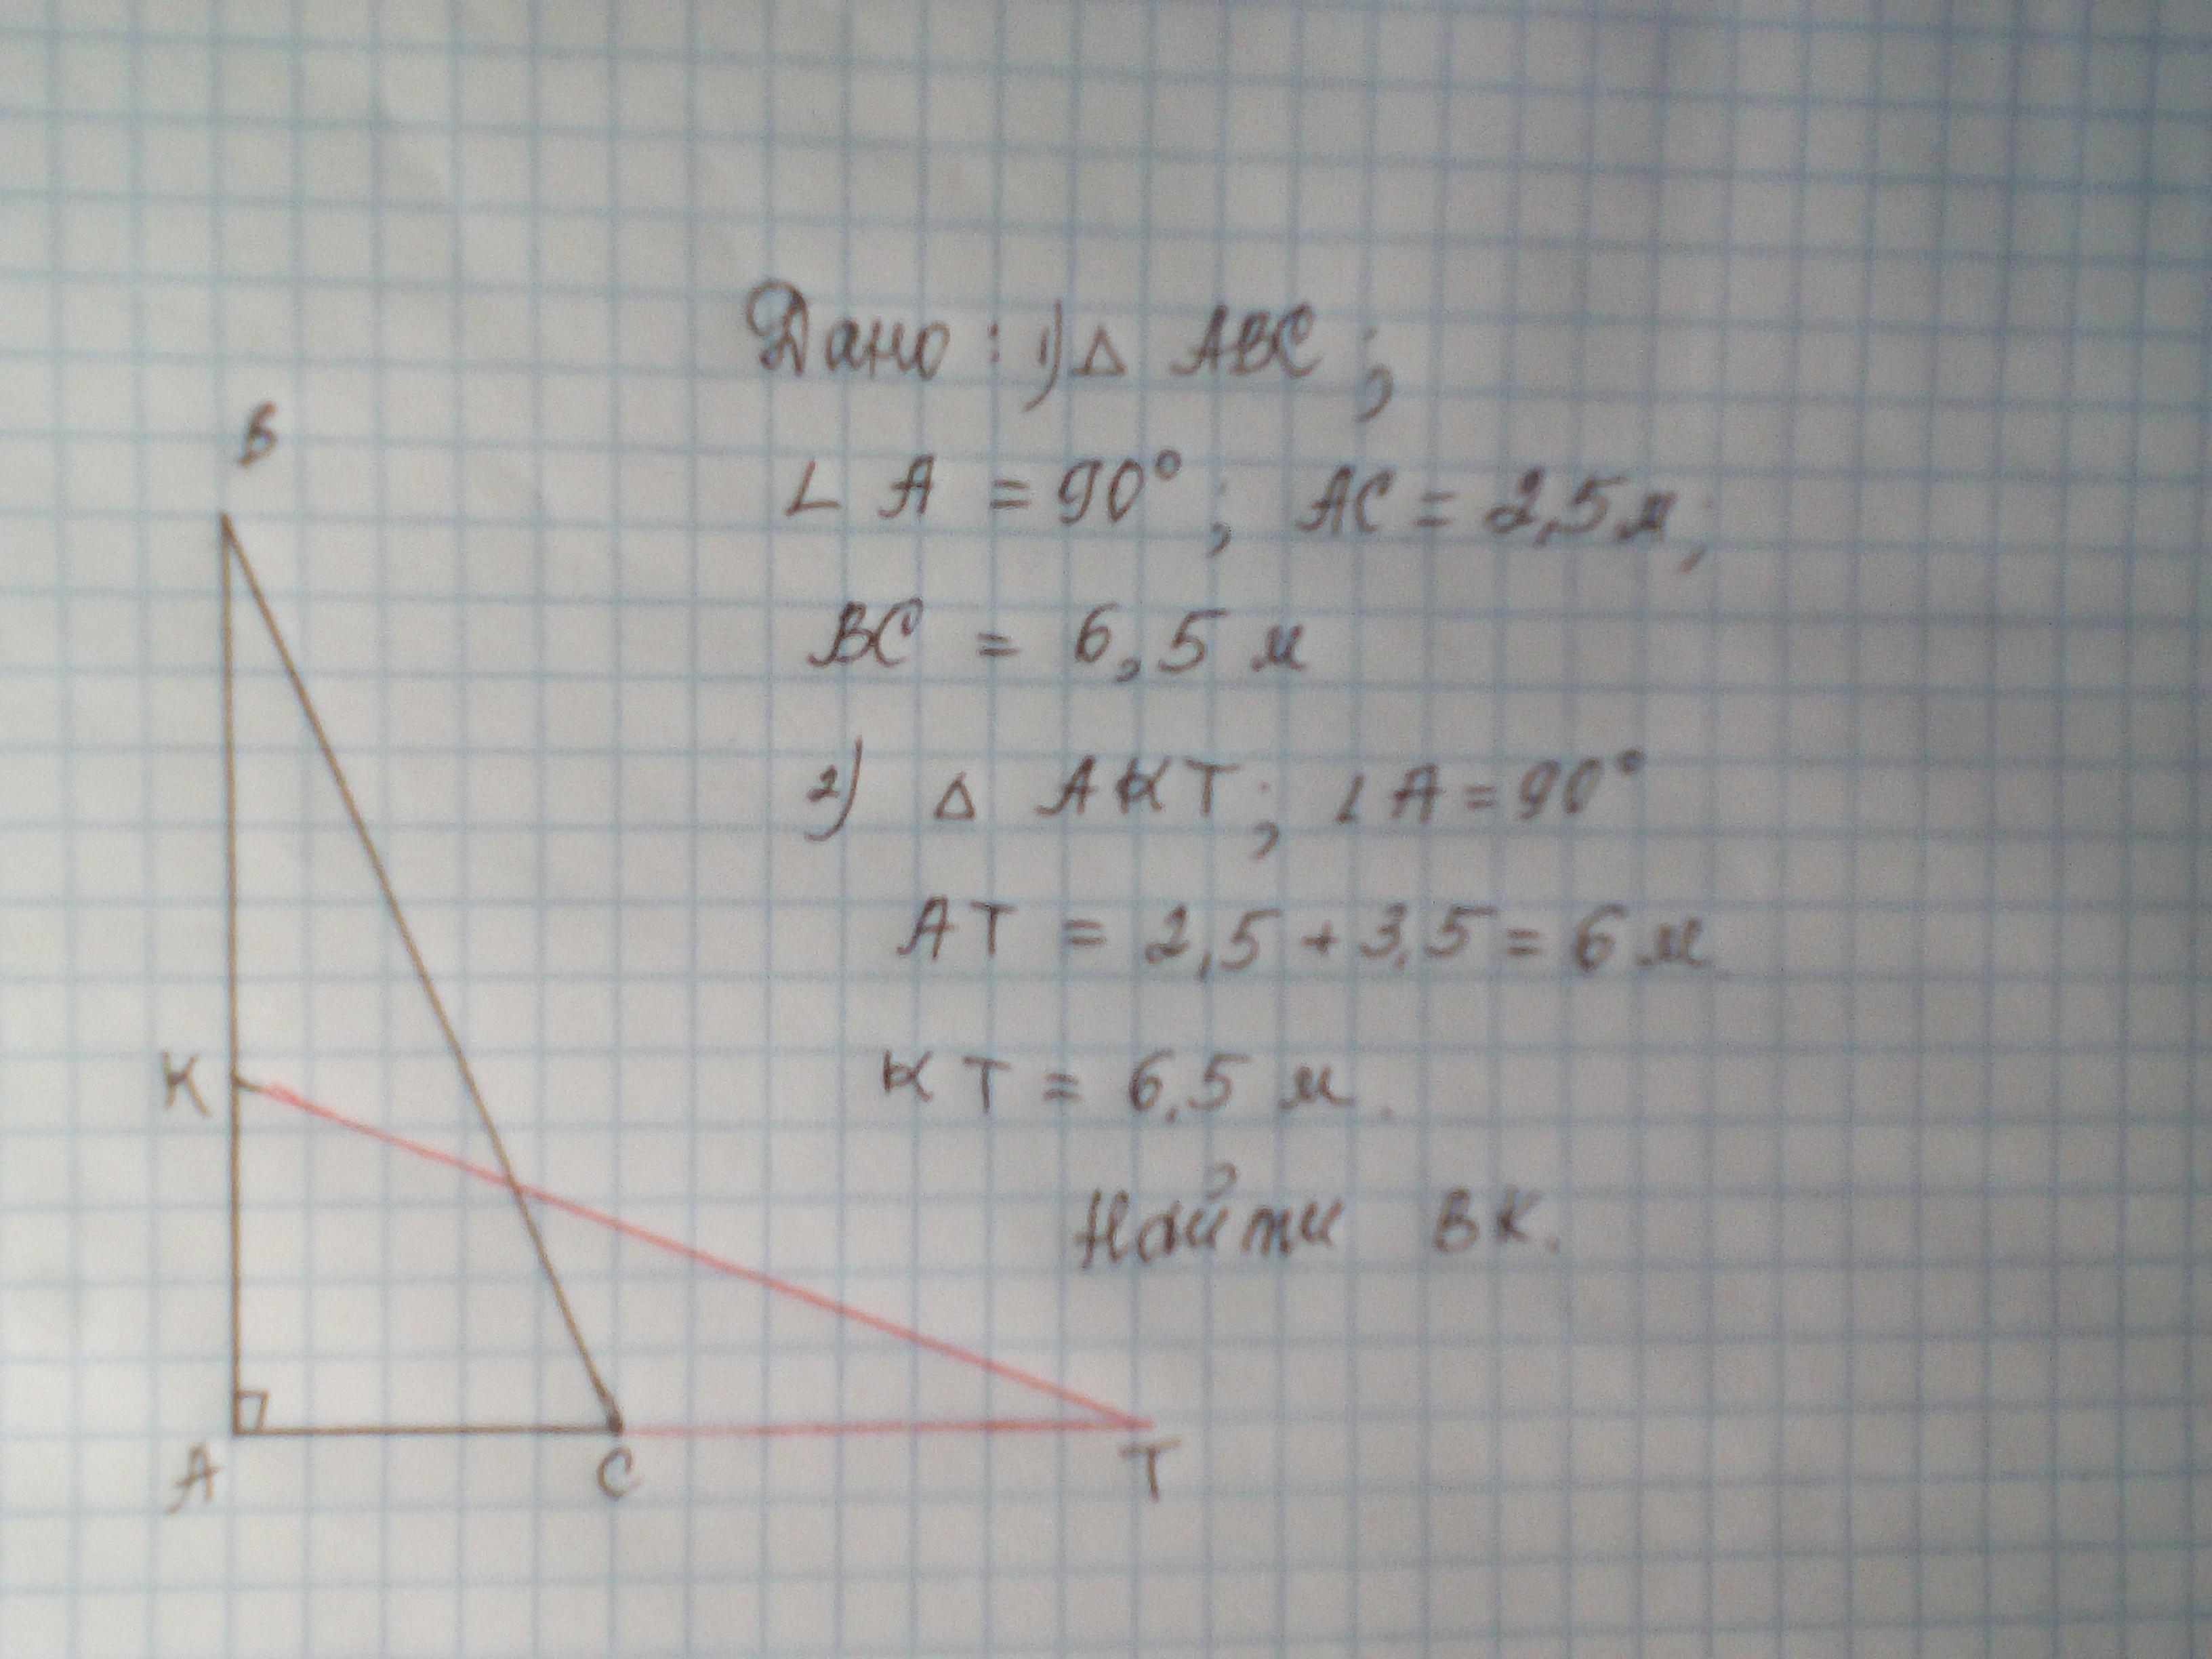 Дано: 1) Δ ABC;
∠ A = 90°; AC = 2,5 м;
BC = 6,5 м
2) Δ AKT; ∠ A = 90°
AT = 2,5 + 3,5 = 6 м.
KT = 6,5 м.
Найти BK.
B
K
A
C
T